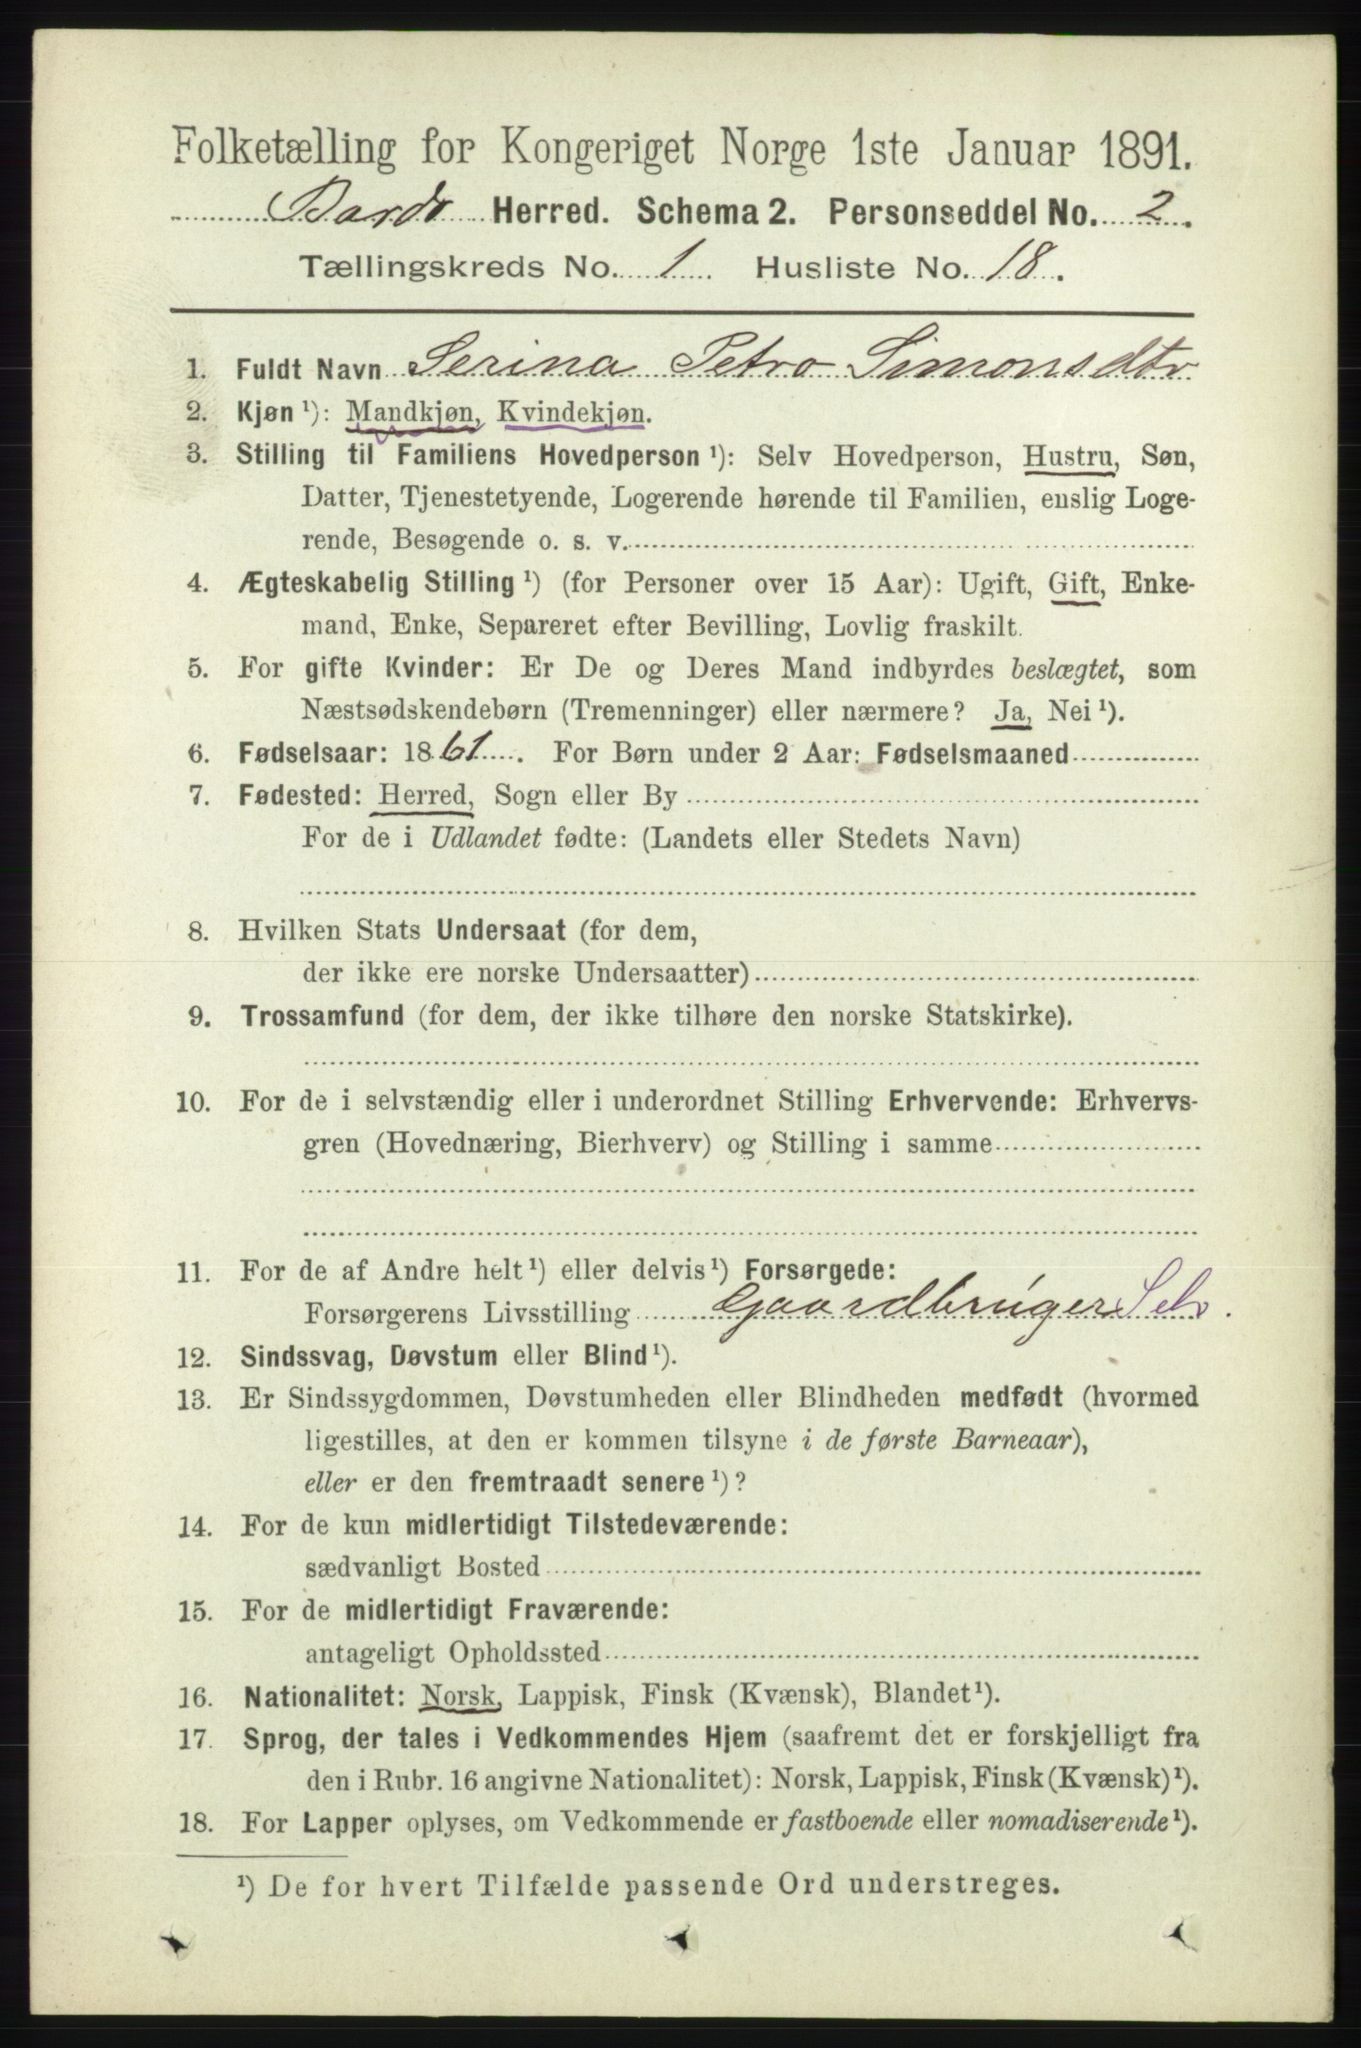 Folketælling for Kongeriget Norge 1ste Januar 1891.
Bardo Herred. Schema 2. Personseddel No. 2.
Tællingskreds No. 1 Husliste No. 18.
1. Fuldt Navn Serina Petro Simonsdtr
2. Kjøn ¹): Mandkjøn, Kvindekjøn.
3. Stilling til Familiens Hovedperson ¹): Selv Hovedperson, Hustru, Søn,
Datter, Tjenestetyende, Logerende hørende til Familien, enslig Loge-
rende, Besøgende o. s. v.
4. Ægteskabelig Stilling ¹) (for Personer over 15 Aar): Ugift, Gift, Enke-
mand, Enke, Separeret efter Bevilling, Lovlig fraskilt.
5. For gifte Kvinder: Er De og Deres Mand indbyrdes beslægtet, som
Næstsødskendebørn (Tremenninger) eller nærmere? Ja, Nei ¹).
6. Fødselsaar: 1861. For Børn under 2 Aar: Fødselsmaaned
7. Fødested: Herred, Sogn eller By
For de i Udlandet fødte: (Landets eller Stedets Navn)
8. Hvilken Stats Undersaat (for dem,
der ikke ere norske Undersaatter)
9. Trossamfund (for dem, der ikke tilhøre den norske Statskirke).
10. For de i selvstændig eller i underordnet Stilling Erhvervende: Erhvervs-
gren (Hovednæring, Bierhverv) og Stilling i samme
11. For de af Andre helt ¹) eller delvis ¹) Forsørgede:
Forsørgerens Livsstilling Gaardbrúger Selv.
12. Sindssvag, Døvstum eller Blind ¹).
13. Er Sindssygdommen, Døvstumheden eller Blindheden medfødt (hvormed
ligestilles, at den er kommen tilsyne i de første Barneaar),
eller er den fremtraadt senere ¹)?
14. For de kun midlertidigt Tilstedeværende:
sædvanligt Bosted
15. For de midlertidigt Fraværende:
antageligt Opholdssted
16. Nationalitet: Norsk, Lappisk, Finsk (Kvænsk), Blandet ¹).
17. Sprog, der tales i Vedkommendes Hjem (saafremt det er forskjelligt fra
den i Rubr. 16 angivne Nationalitet): Norsk, Lappisk, Finsk (Kvænsk) ¹).
18. For Lapper oplyses, om Vedkommende er fastboende eller nomadiserende ¹).
¹) De for hvert Tilfælde passende Ord understreges.